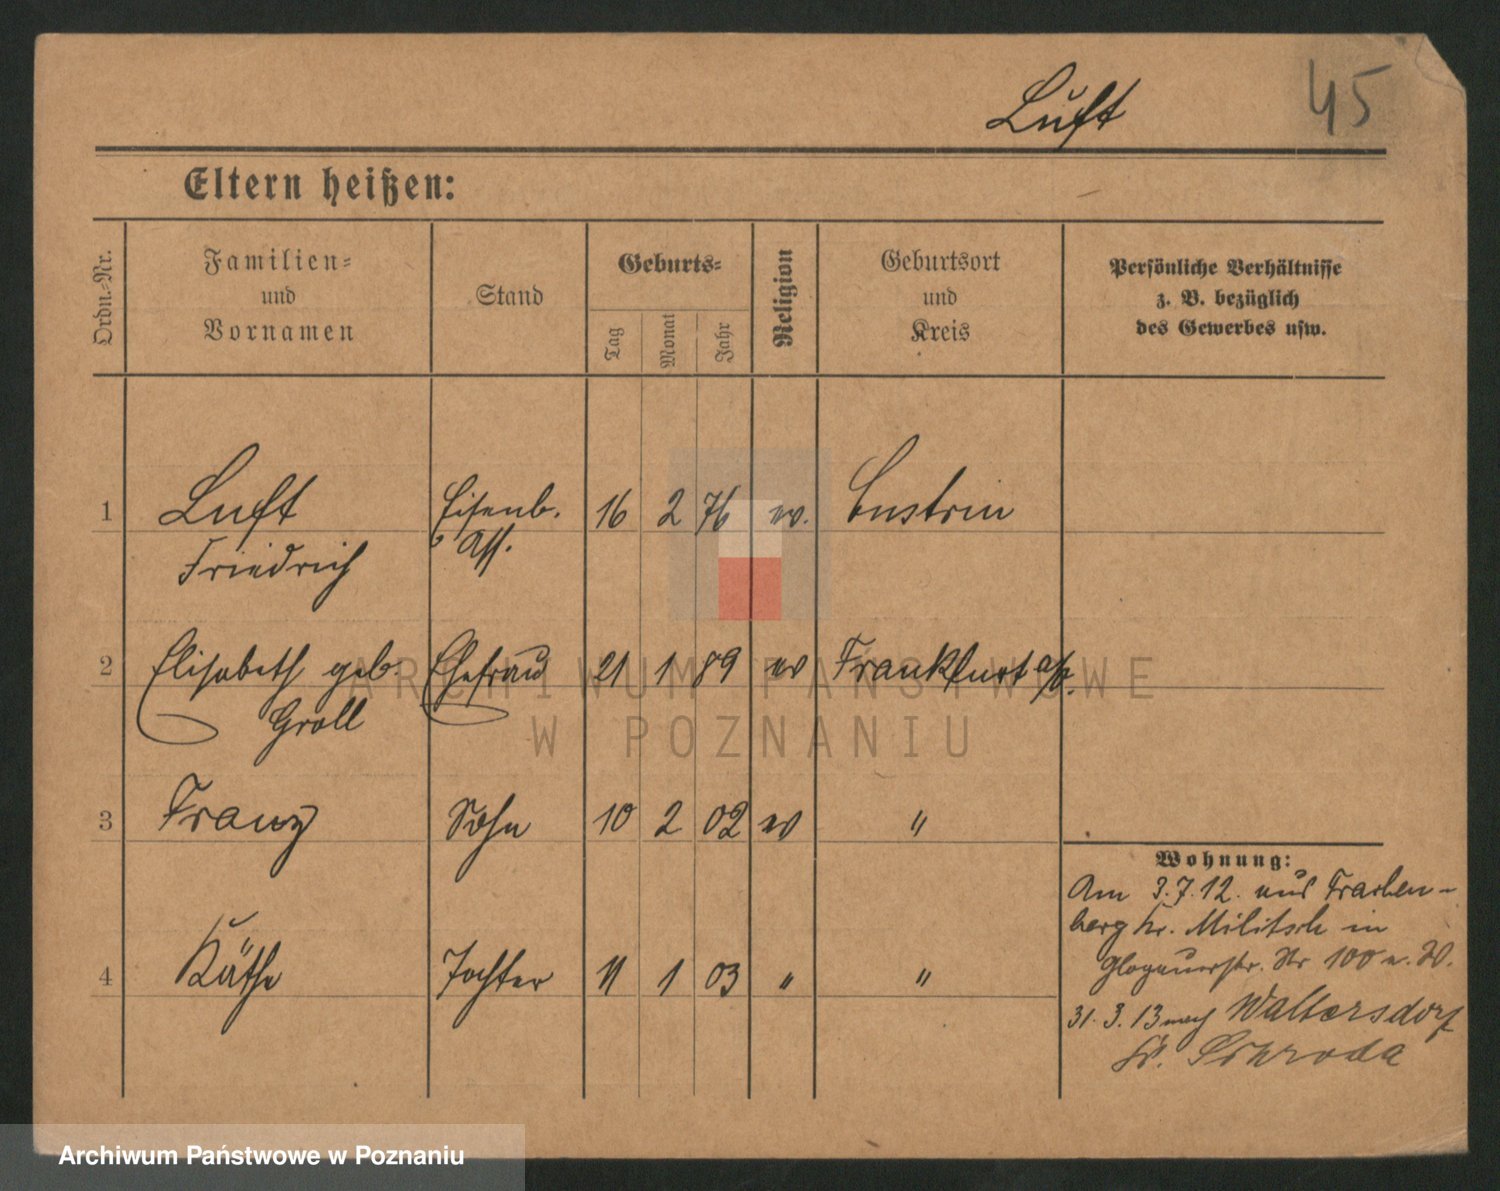 Luft
45
Eltern heißen:
Ordn.-Nr.
Familien-
und
Vornamen
Stand
Geburts-
Tag
Monat
Jahr
Religion
Geburtsort
und
Kreis
Persönliche Verhältnisse
z. B. bezüglich
des Gewerbes usw.
1 Luft Eisenb. 16 2 76 ev. Custrin
Friedrich Ass.
2 Elisabeth geb. Ehefrau 21 1 89 ev Frankfurt a/O.
Groll
3 Franz Sohn 10 2 02 ev "
Wohnung:
Am 3.7.12. aus Trachen-
berg Kr. Militsch in
Glogauerstr. Nr 100 a. W.
4 Käthe Tochter 11 1 03 " "
31. 3. 13 nach Waltersdorf
Kr. Schroda
ARCHIWUM PAŃSTWOWE
W POZNANIU
Archiwum Państwowe w Poznaniu